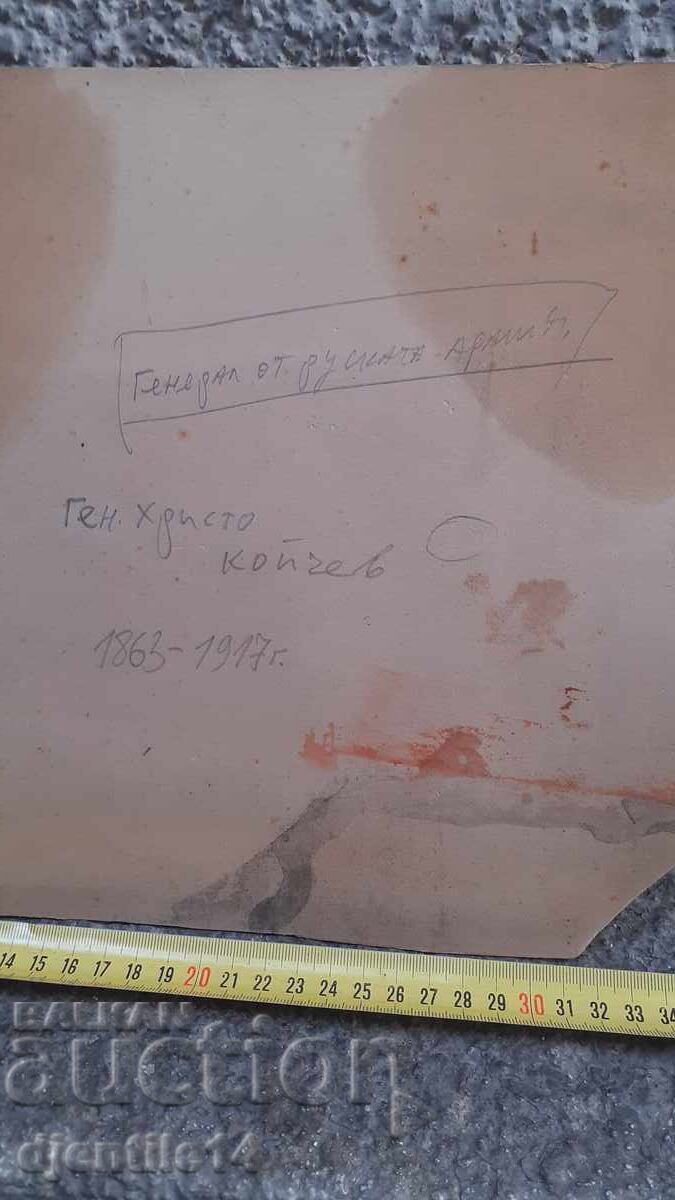 Генерал от руската армия.
Ген. Христо
Копчев
1863-1917г.
14 15 16 17 18 19 20 21 22 23 24 25 26 27 28 29 30 31 32 33 34
БАЛКАН
auction
djentile14